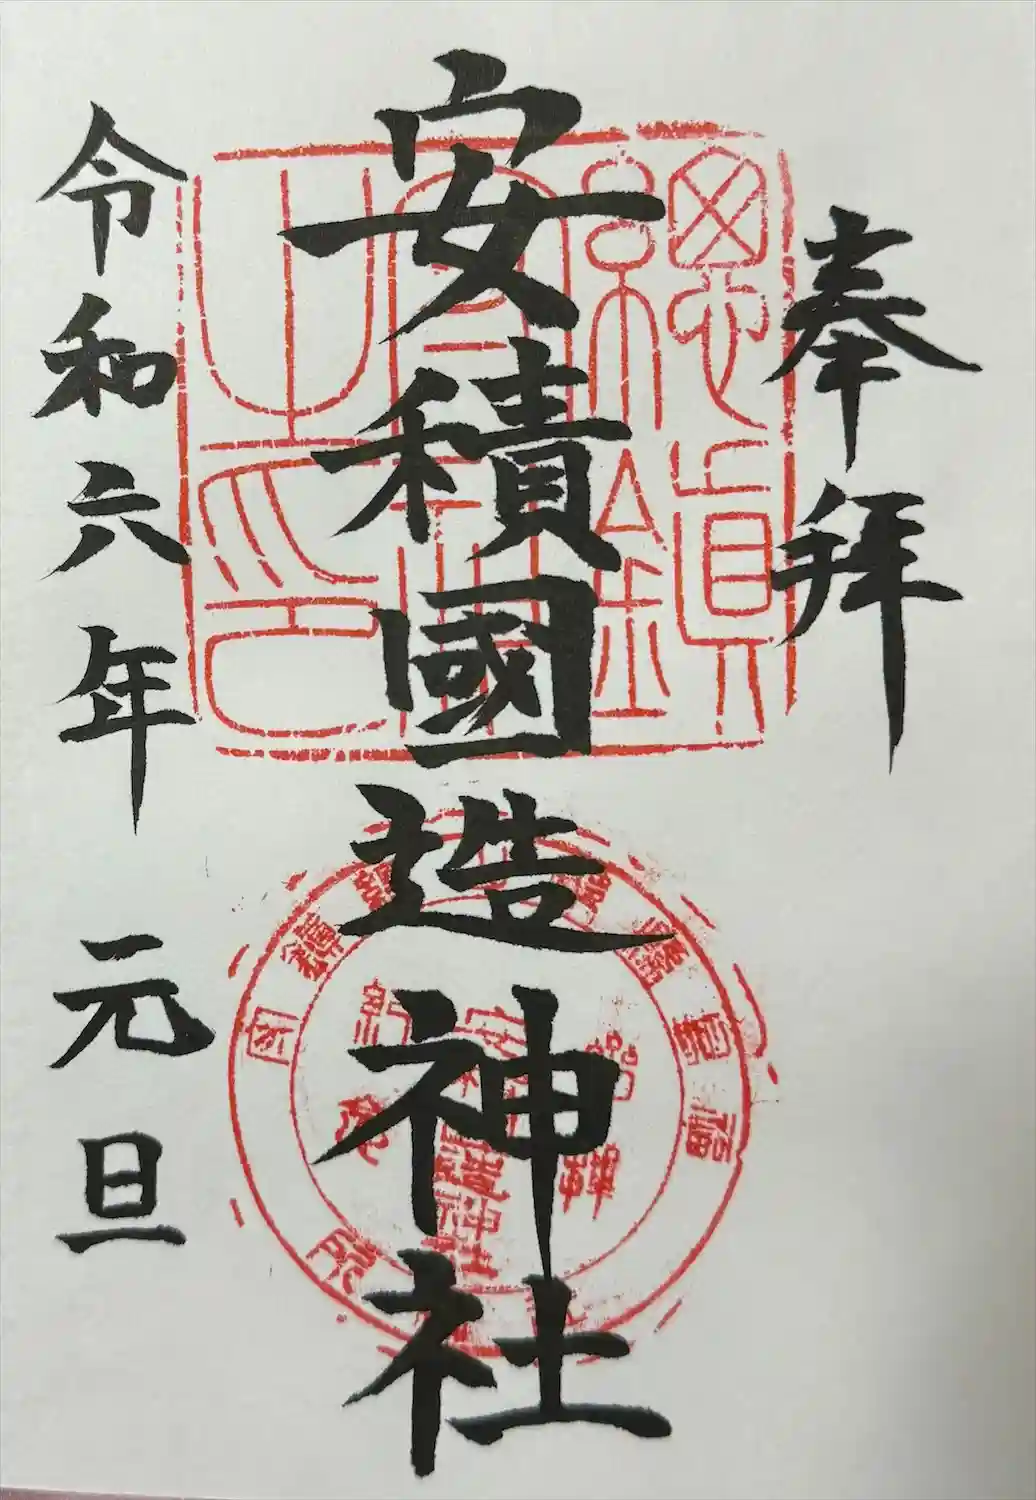 奉拝
安積國造神社
令和六年 元旦
總鎮